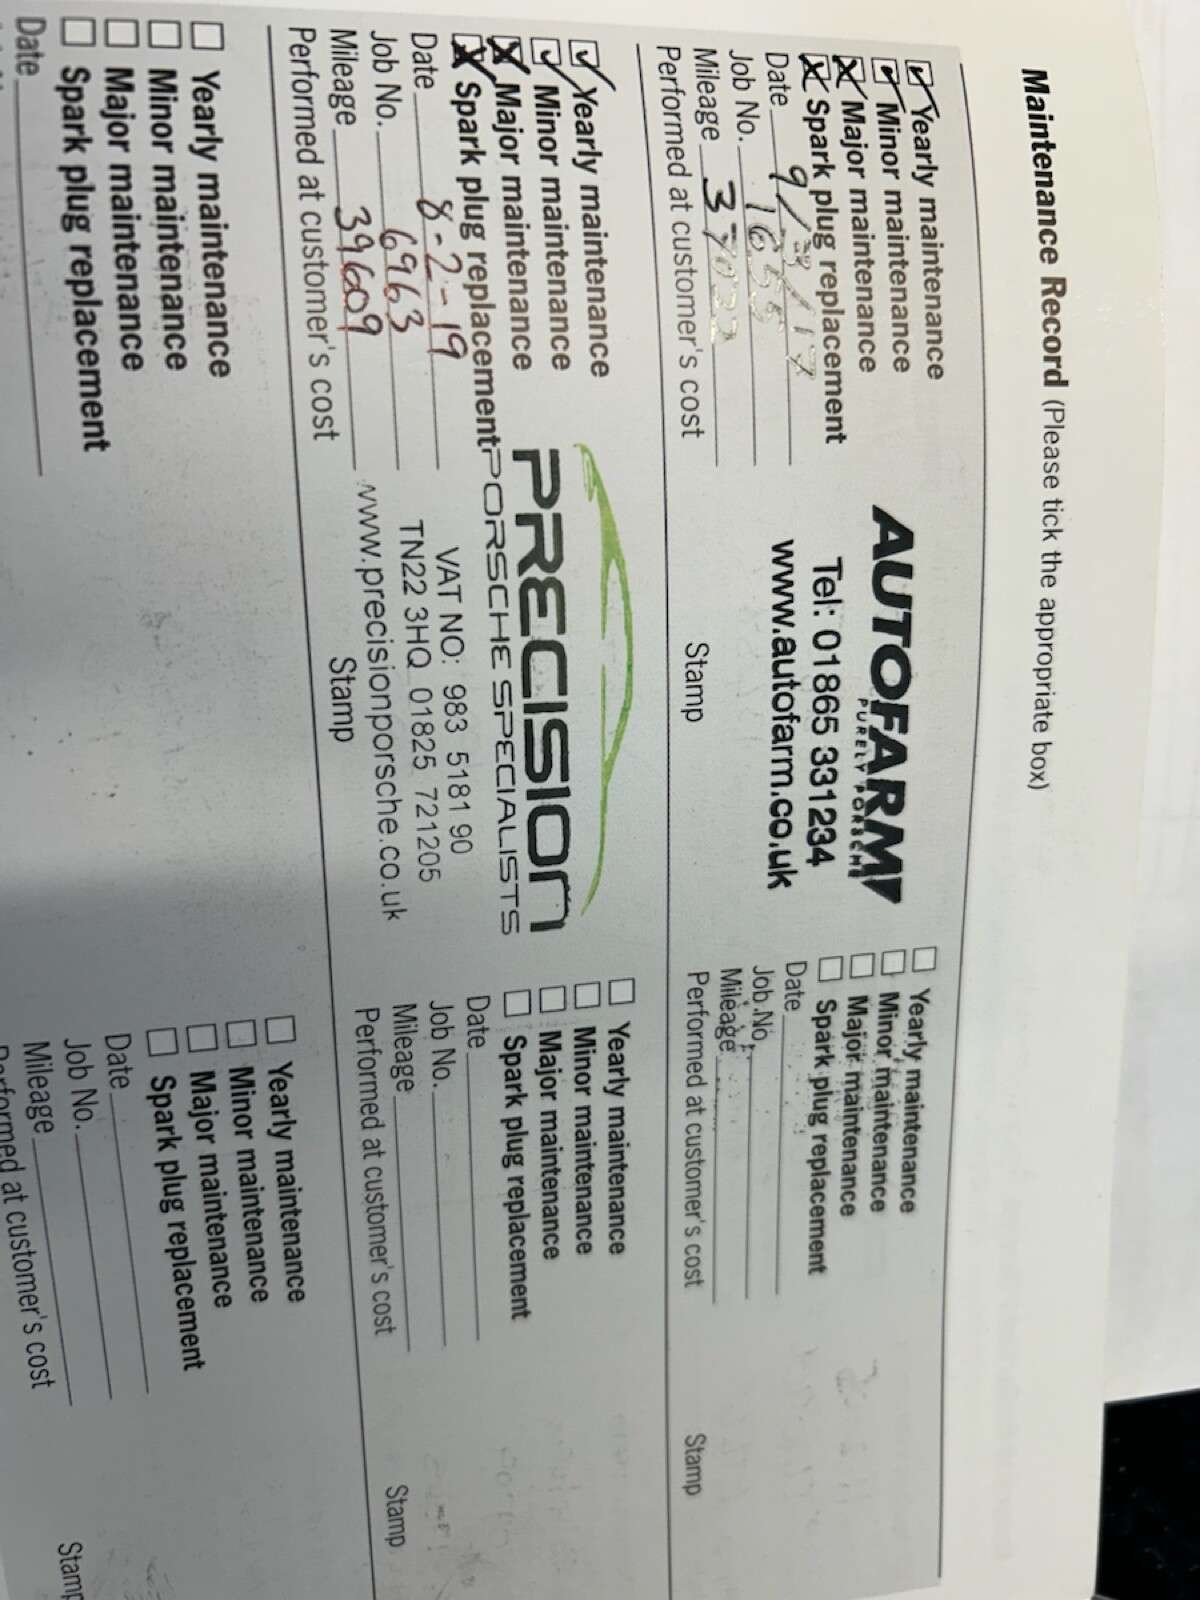 Maintenance Record (Please tick the appropriate box)
Yearly maintenance
Minor maintenance
Major maintenance
Spark plug replacement
Date
Job No.
Mileage
Performed at customer's cost
AUTOFARM
PURELY PORSCHE
Tel: 01865 331234
www.autofarm.co.uk
Stamp
Yearly maintenance
Minor maintenance
Major maintenance
Spark plug replacement
Date
Job No.
Mileage
Performed at customer's cost
Stamp
Yearly maintenance
Minor maintenance
Major maintenance
Spark plug replacement
Date 8-2-19
Job No. 6963
Mileage 39609
Performed at customer's cost
PRECISION
PORSCHE SPECIALISTS
VAT NO: 983 5181 90
TN22 3HQ 01825 721205
www.precisionporsche.co.uk
Stamp
Yearly maintenance
Minor maintenance
Major maintenance
Spark plug replacement
Date
Job No.
Mileage
Performed at customer's cost
Stamp
Yearly maintenance
Minor maintenance
Major maintenance
Spark plug replacement
Date
Yearly maintenance
Minor maintenance
Major maintenance
Spark plug replacement
Date
Job No.
Mileage
Performed at customer's cost
Stamp